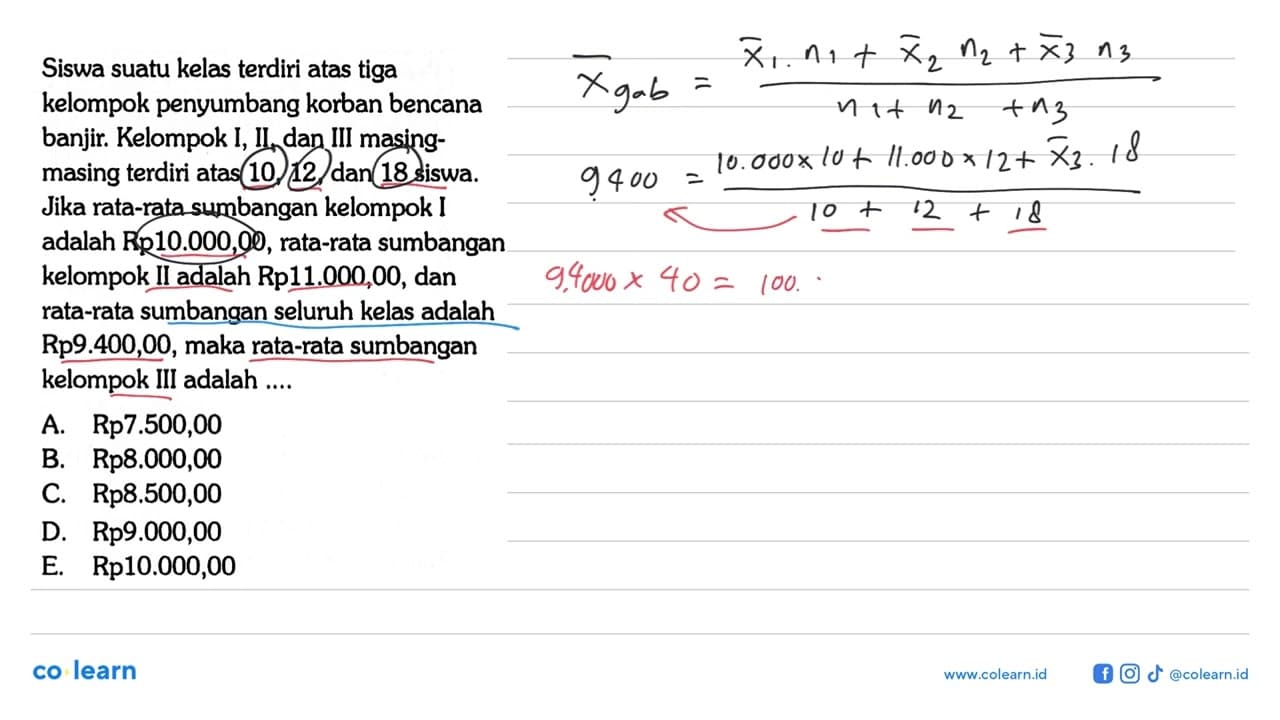 Siswa suatu kelas terdiri atas tiga
kelompok penyumbang korban bencana
banjir. Kelompok I, II, dan III masing-
masing terdiri atas 10, 12, dan 18 siswa.
Jika rata-rata sumbangan kelompok I
adalah Rp10.000,00, rata-rata sumbangan
kelompok II adalah Rp11.000,00, dan
rata-rata sumbangan seluruh kelas adalah
Rp9.400,00, maka rata-rata sumbangan
kelompok III adalah ....
A. Rp7.500,00
B. Rp8.000,00
C. Rp8.500,00
D. Rp9.000,00
E. Rp10.000,00
x̄gab = x̄1. n1 + x̄2 n2 + x̄3 n3
n1 + n2 + n3
9.400 = 10.000 x 10 + 11.000 x 12 + x̄3. 18
10 + 12 + 18
9.4000 x 40 = 100.
co learn
www.colearn.id
@colearn.id